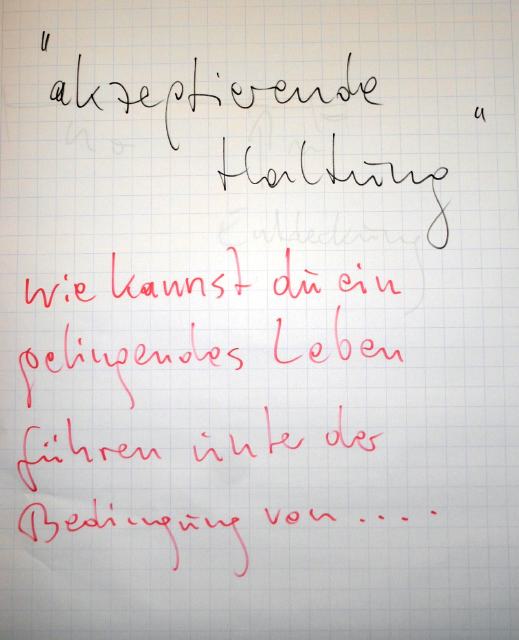 "akzeptierende
Haltung"
wie kannst du ein
gelingendes Leben
führen unte der
Bedingung von ....